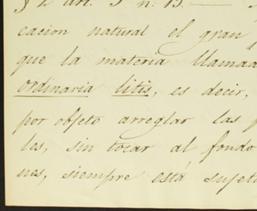 § 2 art. 5 n. 15.
cacion natural el gran
que la materia llamada
ordinaria litis, es decir,
por objeto arreglar las
les, sin tocar al fondo
nes, siempre está sujeto